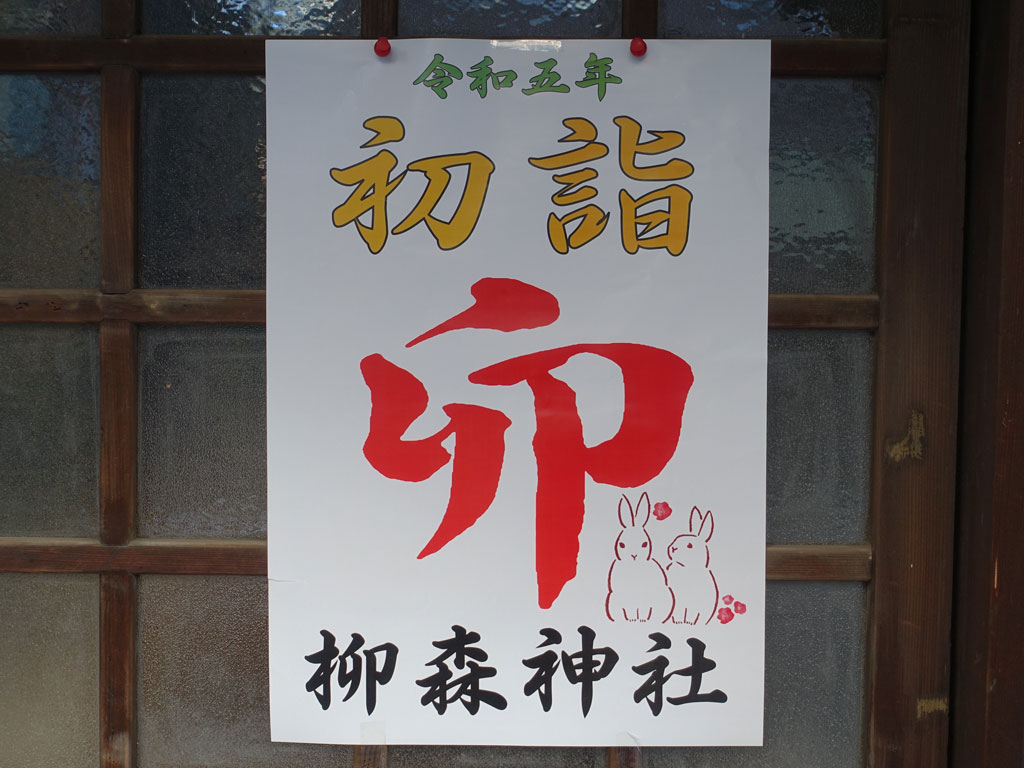 令和五年
初詣
卯
柳森神社